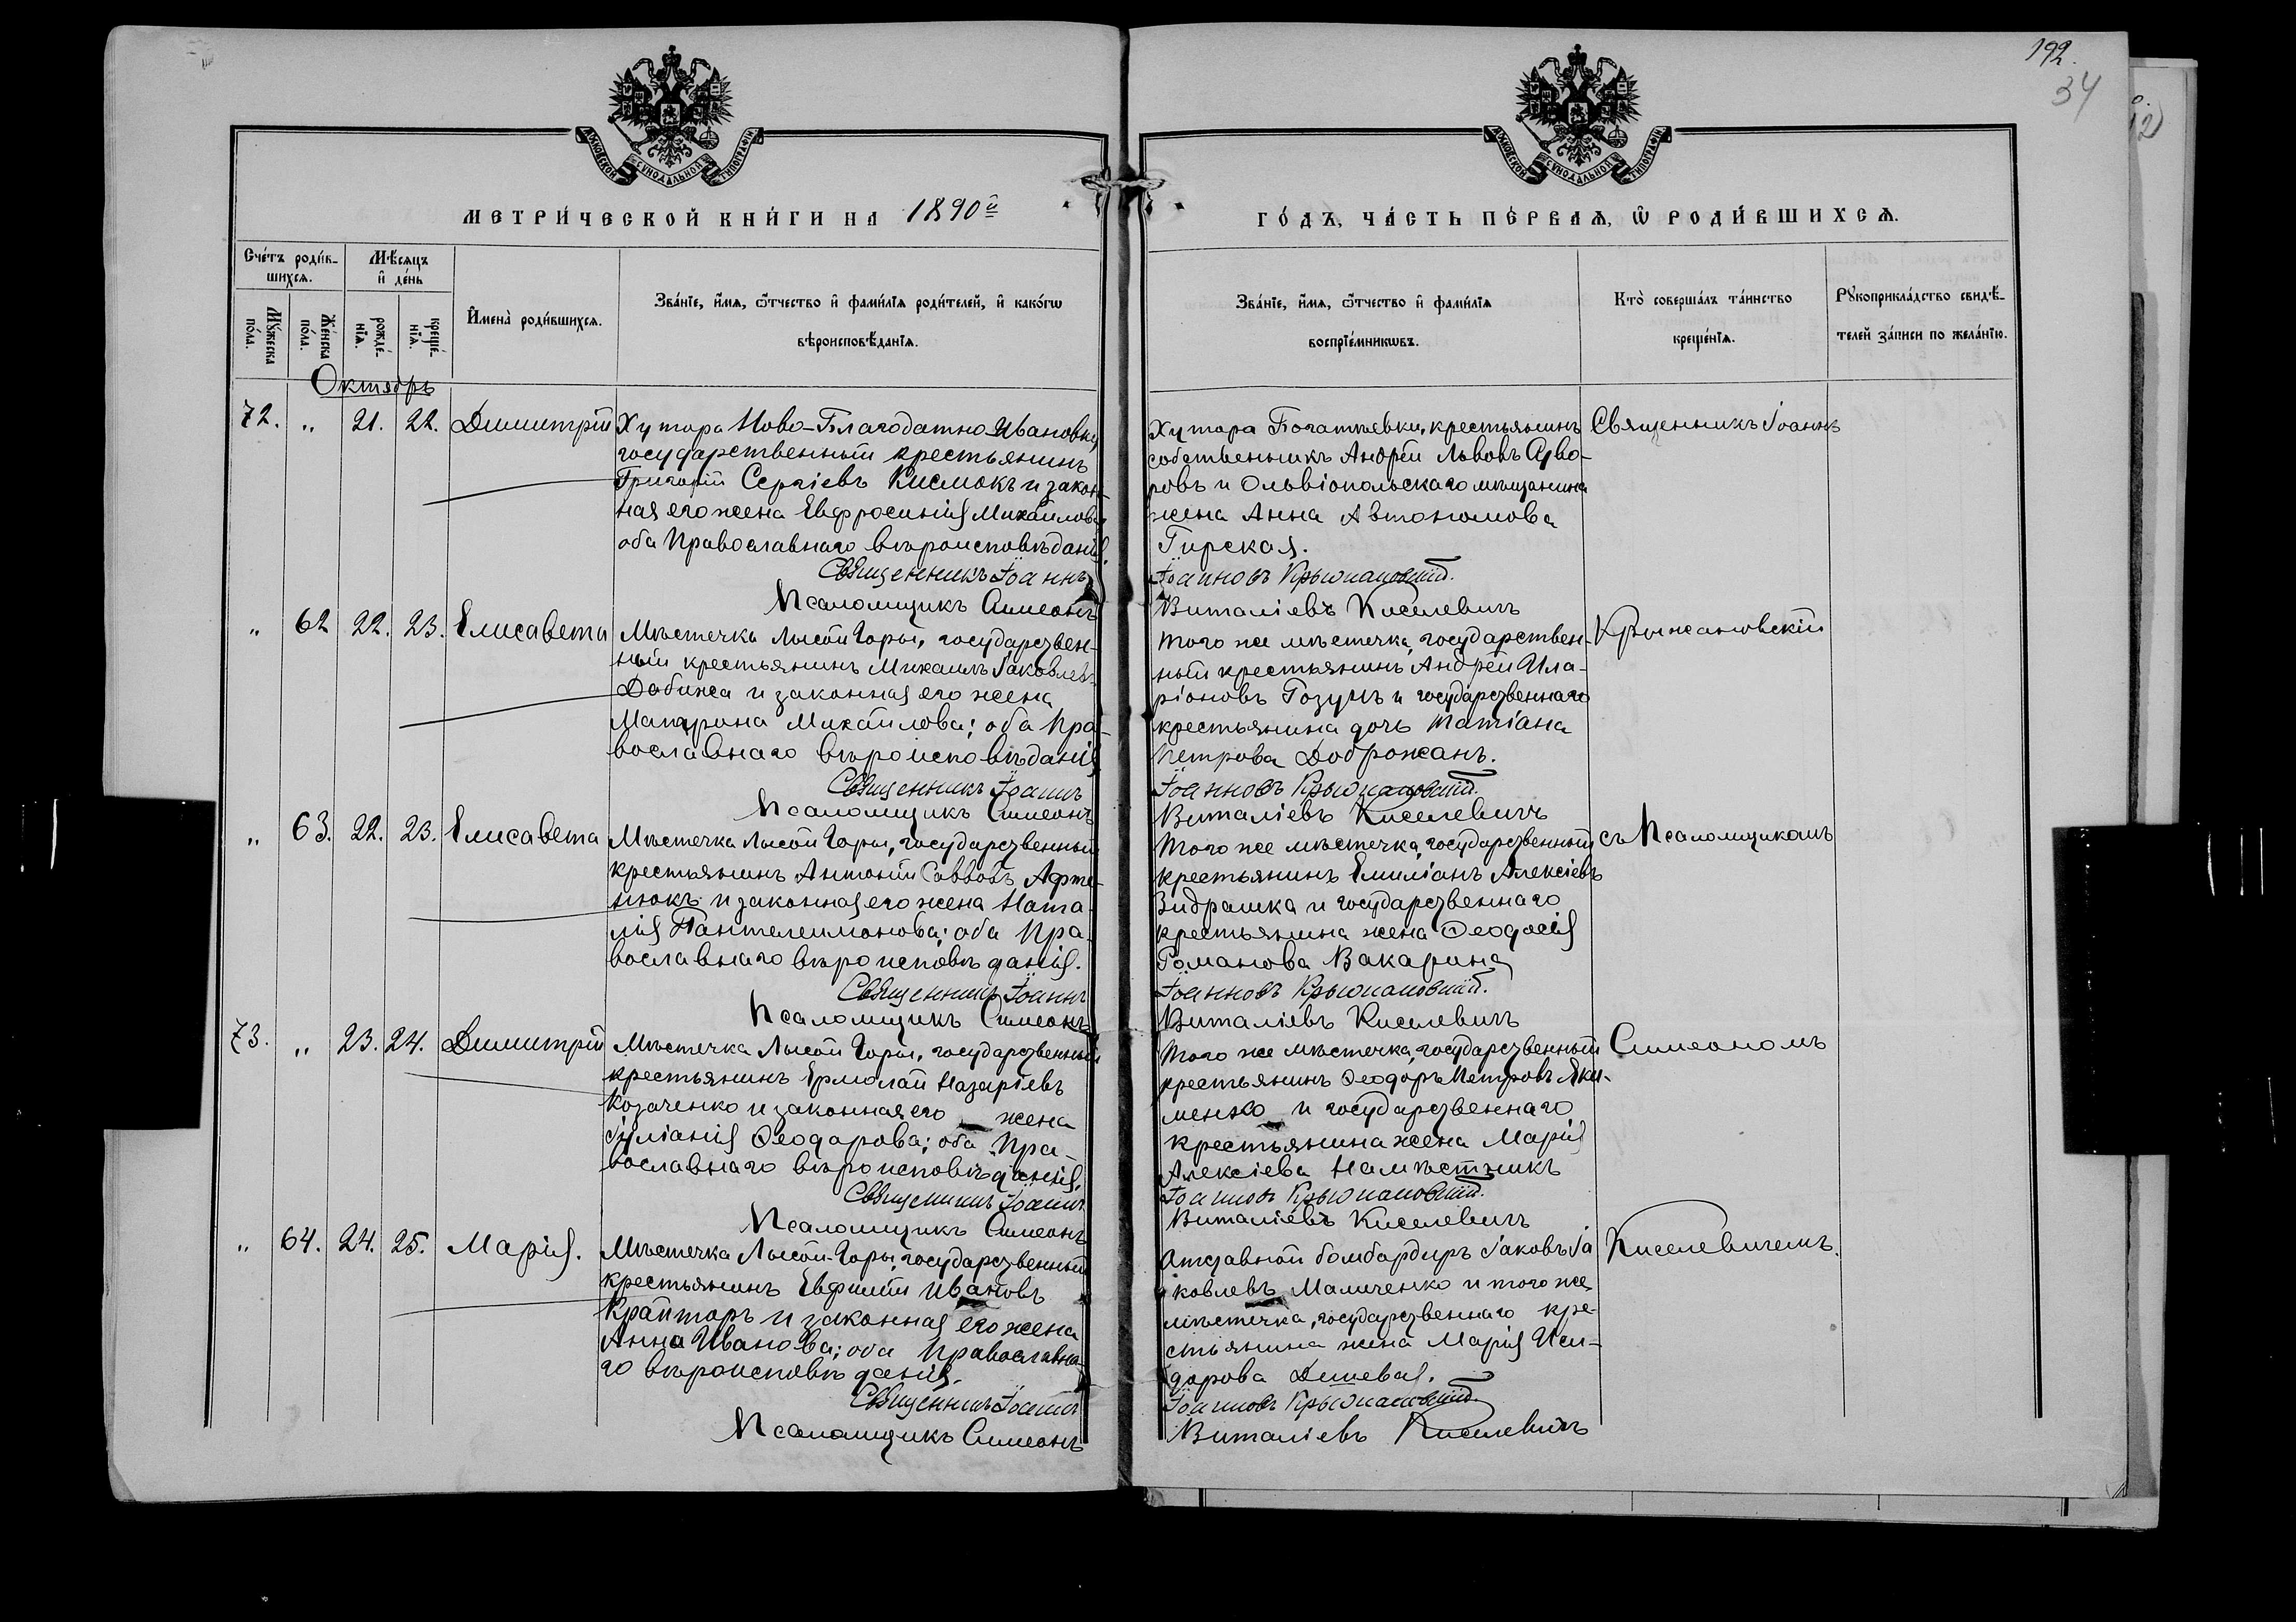 192.
34
МОСКОВСКОЙ СѴНОДАЛЬНОЙ ТИПОГРАФІИ
МОСКОВСКОЙ СѴНОДАЛЬНОЙ ТИПОГРАФІИ
МЕТРИ́ЧЕСКОЙ КНИ́ГИ НА 1890й
ГО́ДЪ, ЧА́СТЬ ПЕ́РВАѦ, Ѡ҆ РОДИ́ВШИХСѦ.
Сче́тъ роди́в-
шихсѧ.
Мꙋ́жеска по́ла.
Же́нска по́ла.
Мѣ́сѧцъ и҆ де́нь
рожде́-нїѧ.
креще́-нїѧ.
И҆мена̀ роди́вшихсѧ.
Зва́нїе, и҆́мѧ, ѻ҆́тчество и҆ фами́лїѧ роди́телей, и҆ како́гѡ
вѣроисповѣ́данїѧ.
Зва́нїе, и҆́мѧ, ѻ҆́тчество и҆ фами́лїѧ
воспрїе́мникѡвъ.
Кто̀ соверша́лъ та́инство
креще́нїѧ.
Рꙋкоприкла́дство свидѣ́-
телей за́писи по жела́нїю.
Октябрь
72. „ 21. 22. Димитрій
Хутора Ново-Благодатно-Ивановки,
государственный крестьянинъ
Григорій Сергіевъ Кисмокъ и закон-
ная его жена Евфросинія Михаилова
оба Православнаго вѣроисповѣданія.
Священникъ Іоаннъ
Псаломщикъ Симеонъ
Хутора Богатыевки, крестьянинъ
собственникъ Андрей Львовъ
и Ольвіопольскаго мѣщанина
жена Анна Автономова
Гирская.
Іоанновъ Крыжановскій.
Виталіевъ Киселевичъ
Священникъ Іоаннъ
„ 62 22. 23. Елисавета
Мѣстечка Лысой Горы, государствен-
ный крестьянинъ Михаилъ Іаковлевъ
Дабижа и законная его жена
Михайлова; оба Пра-
вославнаго вѣроисповѣданія
Священникъ Іоаннъ
Псаломщикъ Симеонъ
Того же мѣстечка, государствен-
ный крестьянинъ Андрей Ила-
ріоновъ Гозунъ и государственнаго
крестьянина дочь Татіана
Петрова Доброжанъ.
Іоанновъ Крыжановскій.
Виталіевъ Киселевичъ
Крыжановскій
„ 63. 22. 23. Елисавета
Мѣстечка Лысой Горы, государственный
крестьянинъ Антоній Саввовъ Афте-
нюкъ и законная его жена Ната-
лія Пантелеимонова; оба Пра-
вославнаго вѣроисповѣданія.
Священникъ Іоаннъ
Псаломщикъ Симеонъ
Того же мѣстечка, государственный
крестьянинъ Емиліанъ Алексіевъ
Зидрашка и государственнаго
крестьянина жена Ѳеодосія
Романова Вакарина
Іоанновъ Крыжановскій.
Виталіевъ Киселевичъ
съ Псаломщикомъ
73. „ 23. 24. Димитрій
Мѣстечка Лысой Горы, государственный
крестьянинъ Ермолай Назаріевъ
Козаченко и законная его жена
Іуліанія Ѳеодорова; оба Пра-
вославнаго вѣроисповѣданія.
Священникъ Іоаннъ
Псаломщикъ Симеонъ
Того же мѣстечка, государственный
крестьянинъ Ѳеодоръ Петровъ Яки-
менко и государственнаго
крестьянина жена Марія
Алексіева Намѣстникъ
Іоанновъ Крыжановскій.
Виталіевъ Киселевичъ
Симеономъ
„ 64. 24. 25. Марія.
Мѣстечка Лысой-Горы, государственный
крестьянинъ Евфимій Ивановъ
Крайторъ и законная его жена
Анна Иванова; оба Православна-
го вѣроисповѣданія.
Священникъ Іоаннъ
Псаломщикъ Симеонъ
Отставной бомбардиръ Іаковъ Іа
ковлевъ Маличенко и того же
мѣстечка, государственнаго кре-
стьянина жена Марія Иси-
дорова Дишевая.
Іоанновъ Крыжановскій.
Виталіевъ Киселевичъ
Киселевичемъ.